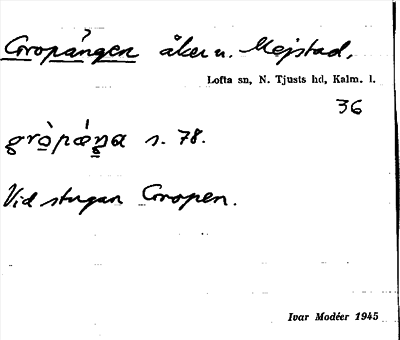 Gropången åker u. Mejstad,
Lofta sn, N. Tjusts hd, Kalm. l.
36
grò̱pǽŋa s. 78.
Vid stugan Gropen.
Ivar Modéer 1945